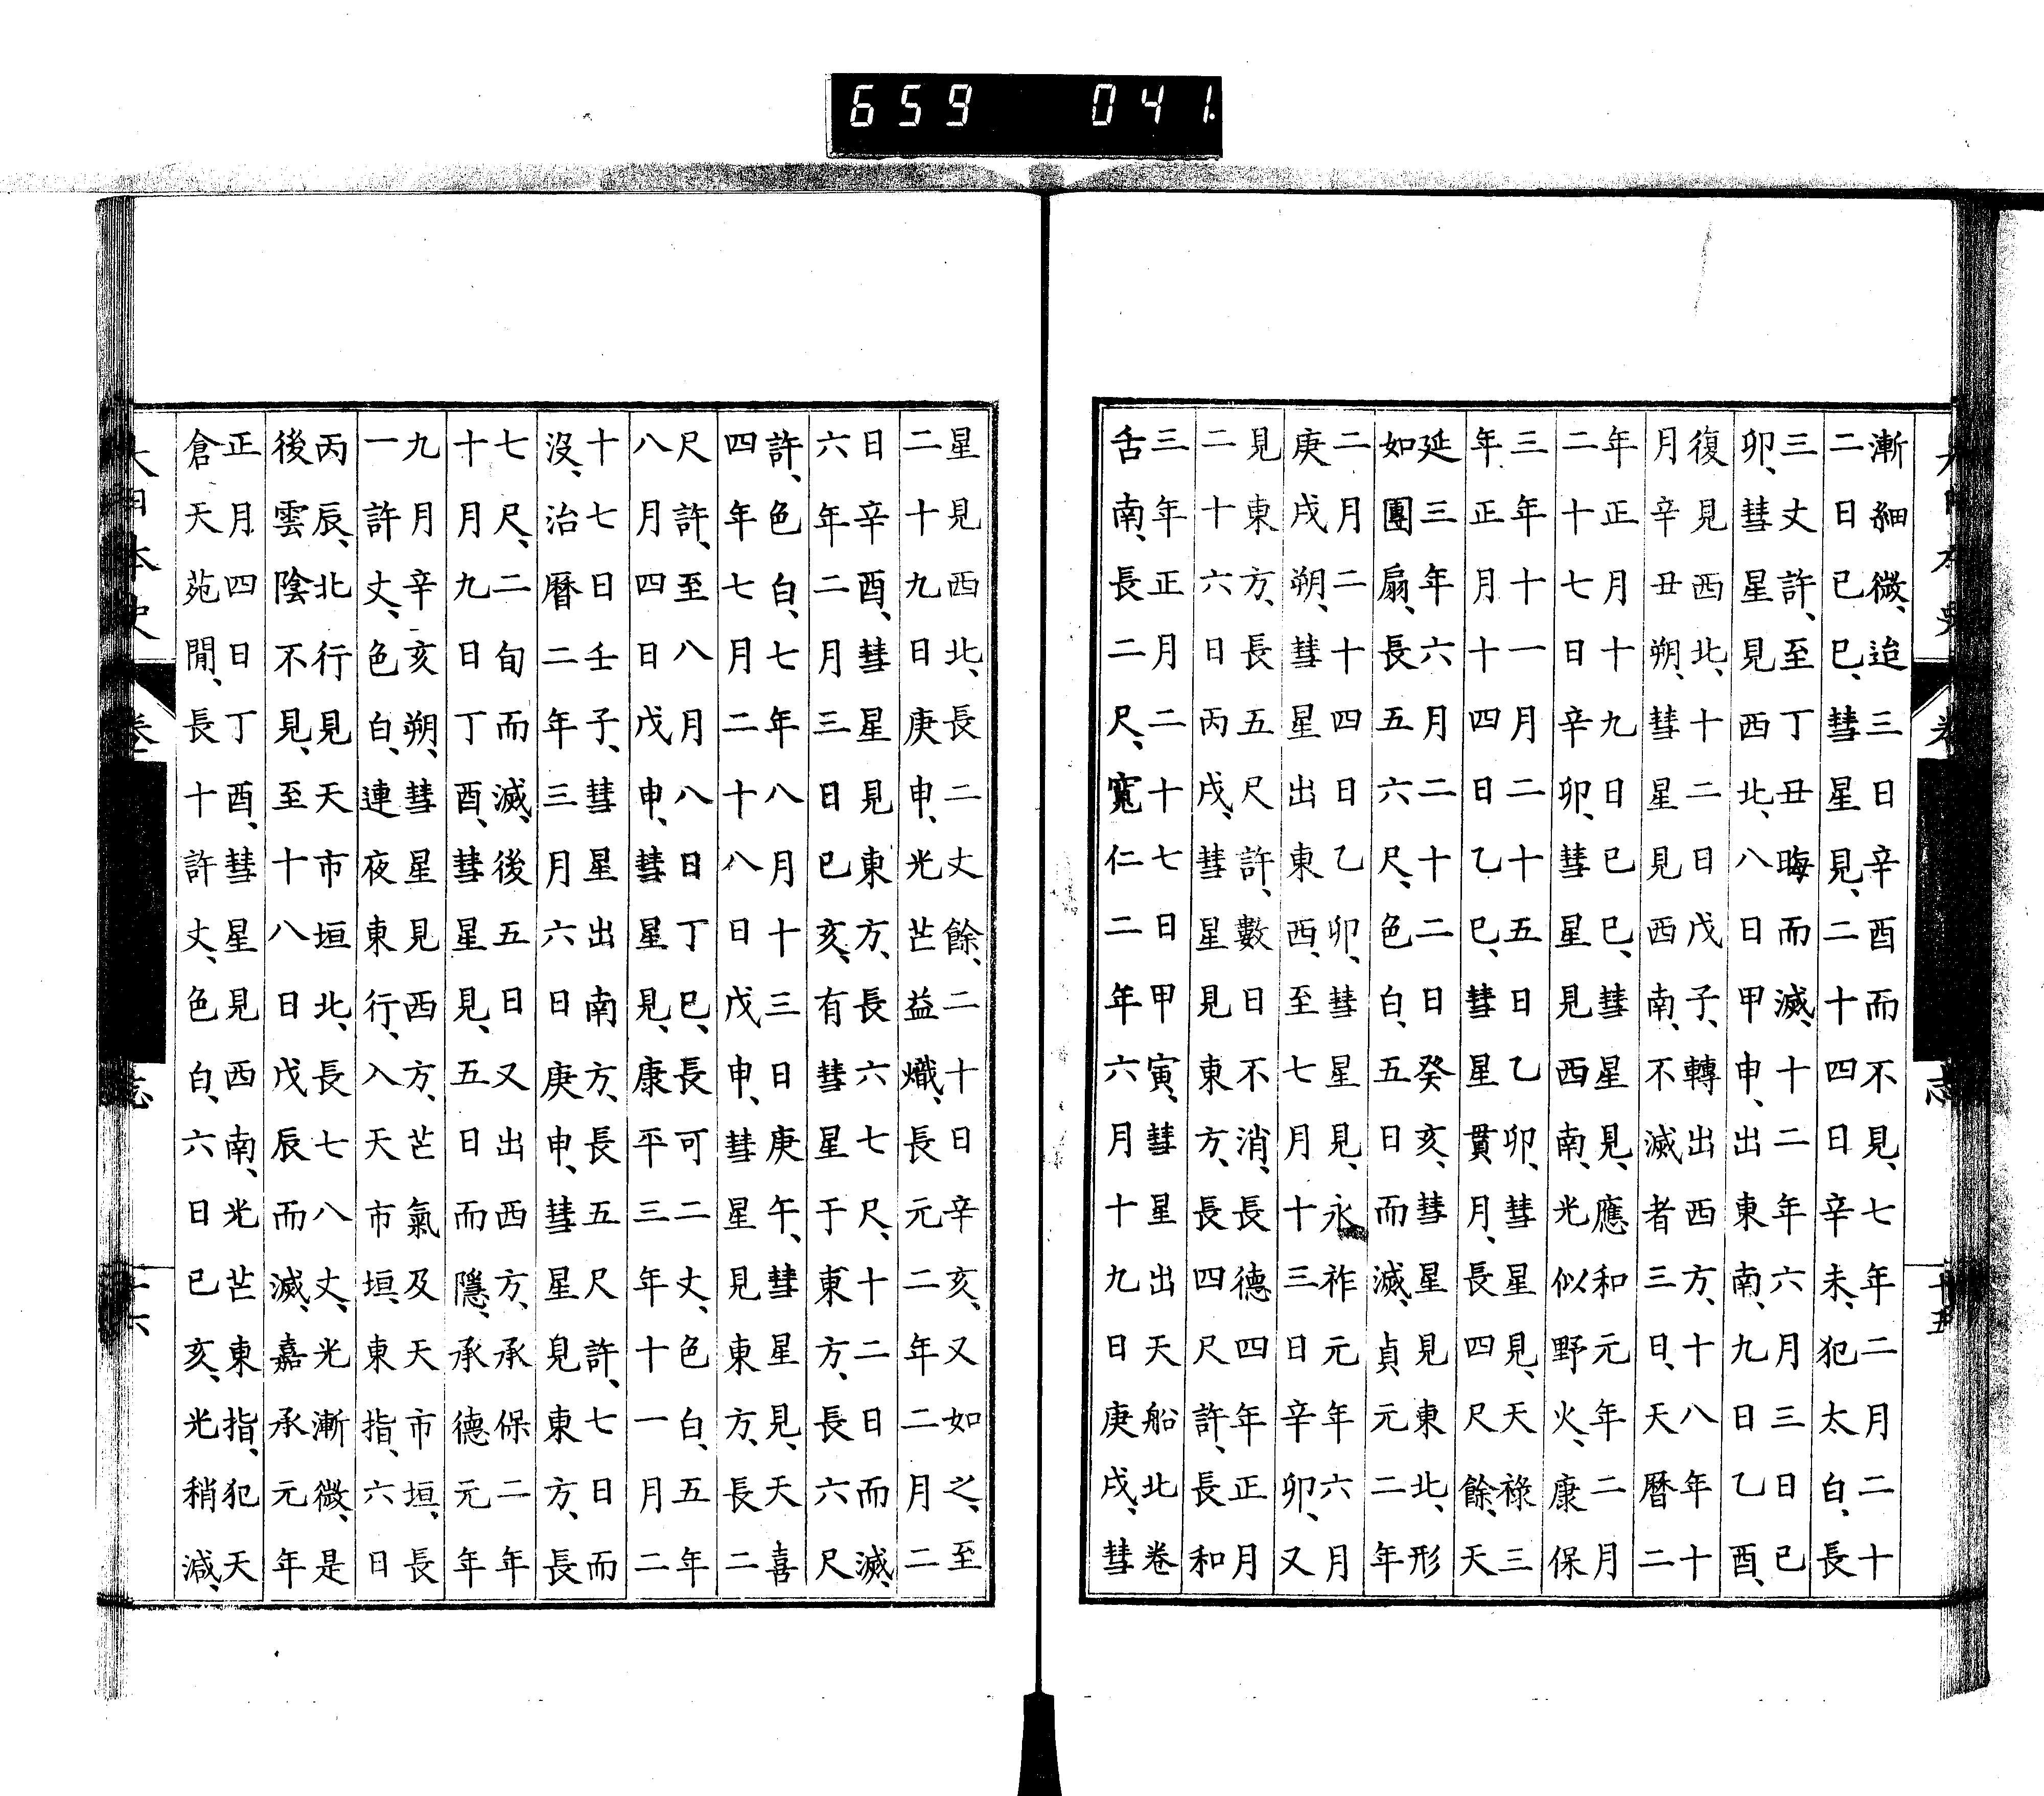 大日本史 卷 志 十五
漸細微、迨三日辛酉而不見、七年二月二十
二日己巳、彗星見、二十四日辛未、犯太白、長
三丈許、至丁丑晦而滅、十二年六月三日己
卯、彗星見西北、八日甲申、出東南、九日乙酉、
復見西北、十二日戊子、轉出西方、十八年十
月辛丑朔、彗星見西南、不滅者三日、天曆二
年正月十九日己巳、彗星見、應和元年二月
二十七日辛卯、彗星見西南、光似野火、康保
三年十一月二十五日乙卯、彗星見、天祿三
年正月十四日乙巳、彗星貫月、長四尺餘、天
延三年六月二十二日癸亥、彗星見東北、形
如團扇、長五六尺、色白、五日而滅、貞元二年
二月二十四日乙卯、彗星見、永祚元年六月
庚戌朔、彗星出東西、至七月十三日辛卯、又
見東方、長五尺許、數日不消、長德四年正月
二十六日丙戌、彗星見東方、長四尺許、長和
三年正月二十七日甲寅、彗星出天船北卷
舌南、長二尺、寬仁二年六月十九日庚戌、彗
星見西北、長二丈餘、二十日辛亥、又如之、至
二十九日庚申、光芒益熾、長元二年二月二
日辛酉、彗星見東方、長六七尺、十二日而滅、
六年二月三日己亥、有彗星于東方、長六尺
許、色白、七年八月十三日庚午、彗星見、天喜
四年七月二十八日戊申、彗星見東方、長二
尺許、至八月八日丁巳、長可二丈、色白、五年
八月四日戊申、彗星見、康平三年十一月二
十七日壬子、彗星出南方、長五尺許、七日而
沒、治曆二年三月六日庚申、彗星見東方、長
七尺、二旬而滅、後五日又出西方、承保二年
十月九日丁酉、彗星見、五日而隱、承德元年
九月辛亥朔、彗星見西方、芒氣及天市垣、長
一許丈、色白、連夜東行、入天市垣、東指、六日
丙辰、北行見天市垣北、長七八丈、光漸微、是
後雲陰不見、至十八日戊辰而滅、嘉承元年
正月四日丁酉、彗星見西南、光芒東指、犯天
倉天苑閒、長十許丈、色白、六日己亥、光稍減、
大日本史 卷 志 十六
659 041.